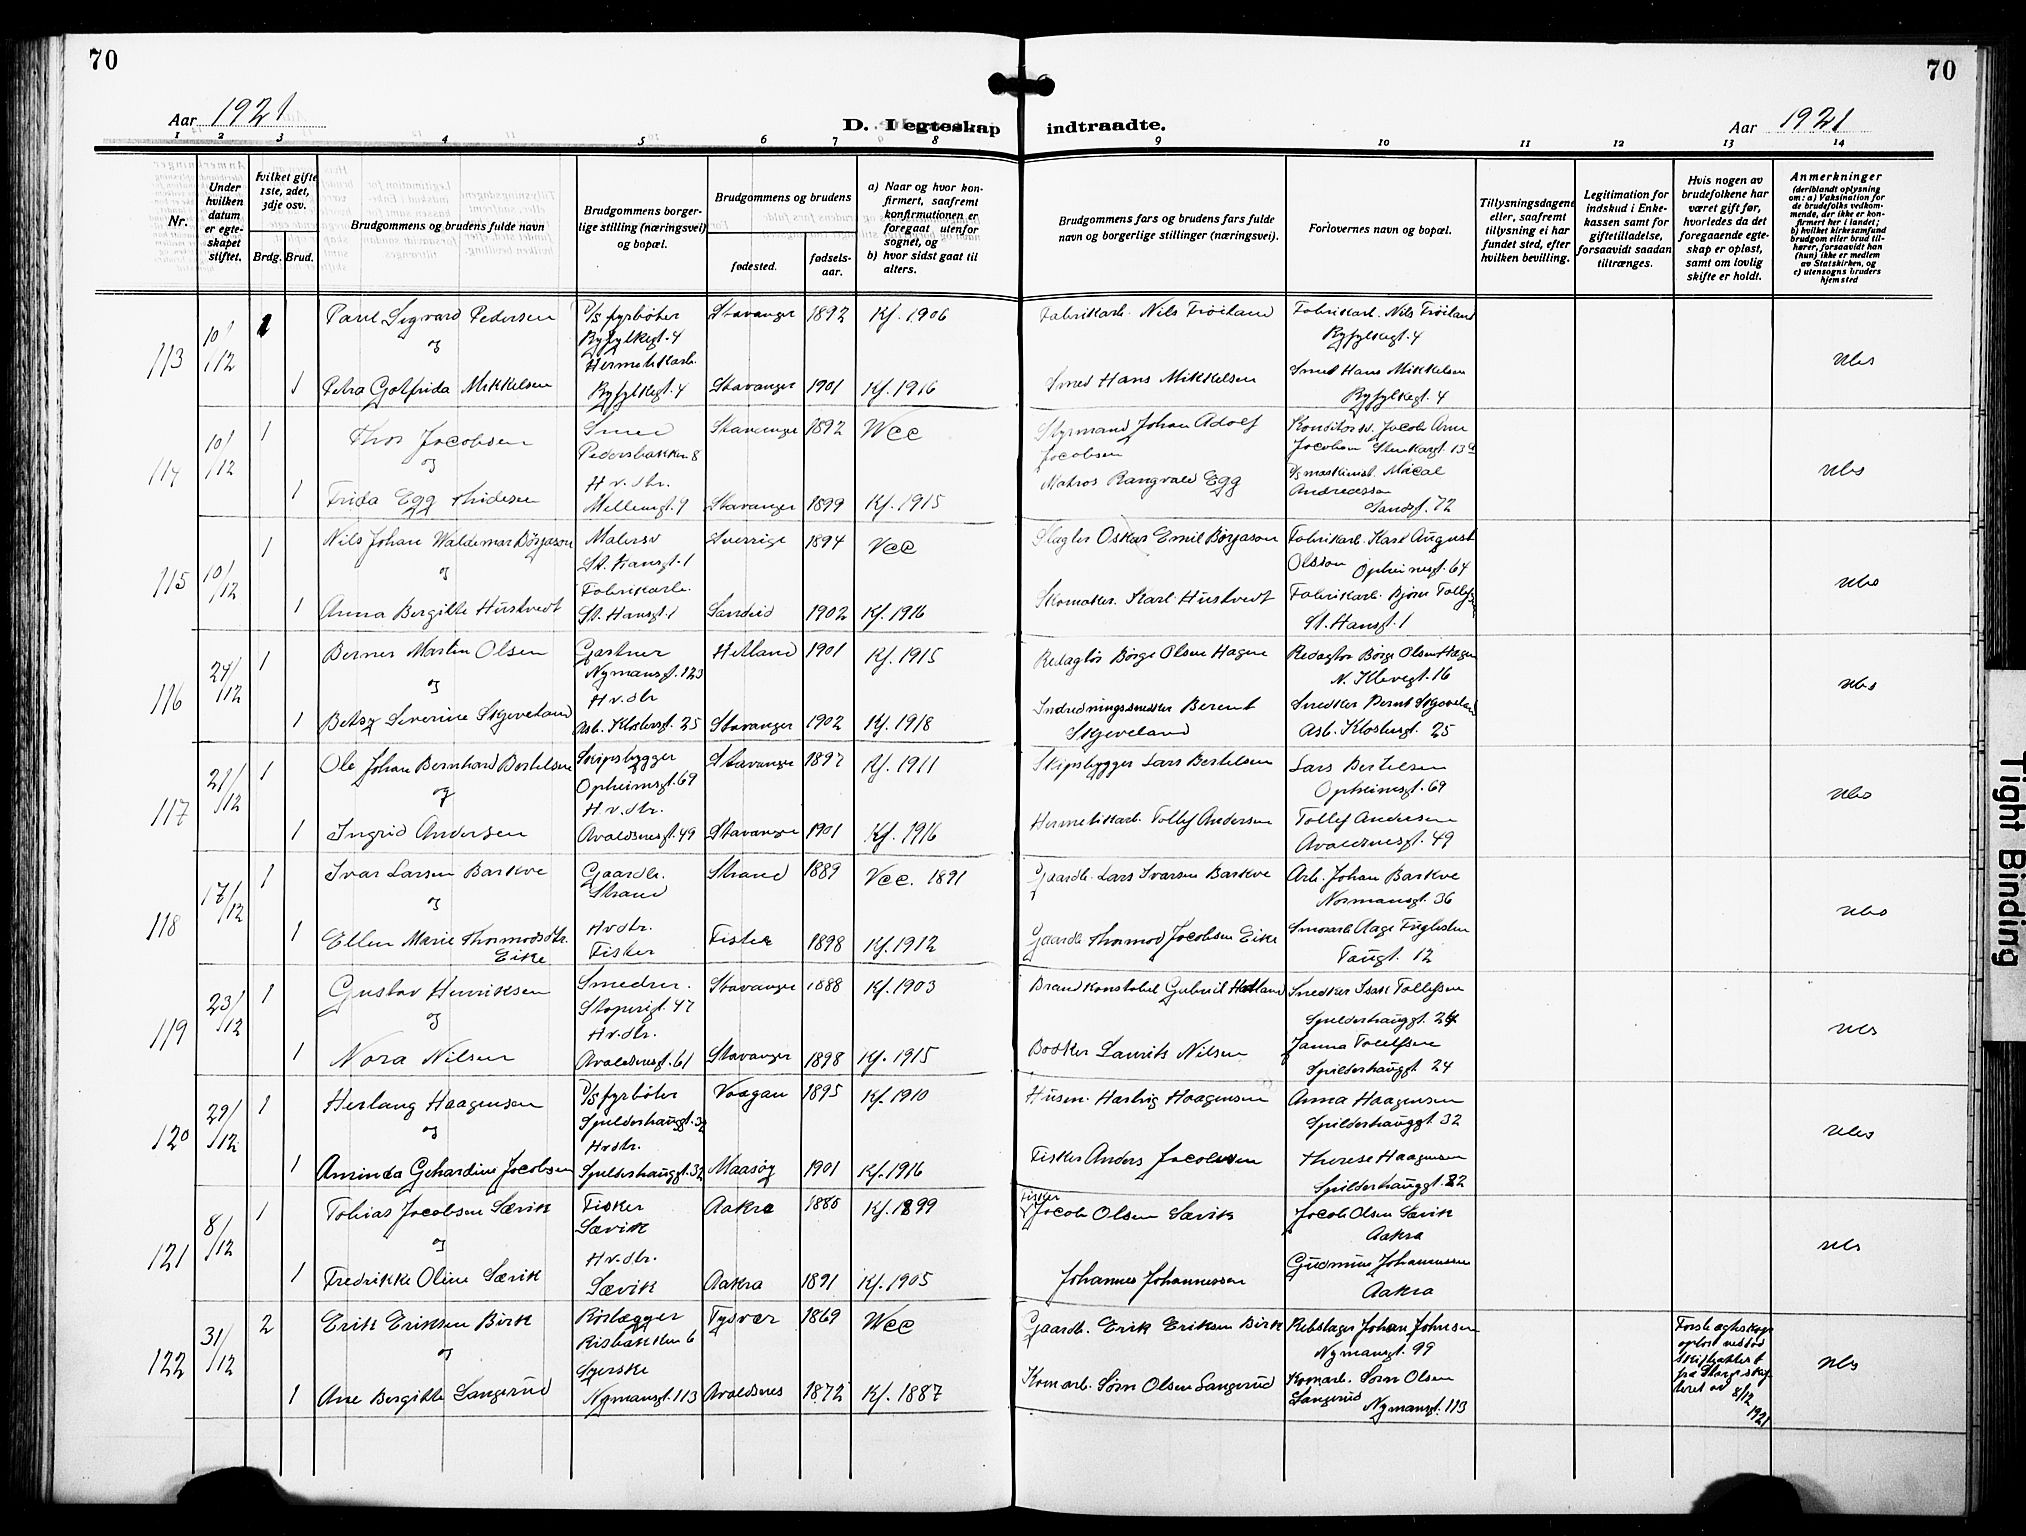 70
70
Aar 1921
D. I egteskap indtraadte.
Aar 1921
1 2 3 4 5 6 7 8 9 10 11 12 13 14
Nr.
Under hvilken datum er egteskapet stiftet.
Hvilket gifte 1ste, 2det, 3dje osv.
Brdg. Brud.
Brudgommens og brudens fulde navn
Brudgommens borgerlige stilling (næringsvei) og bopæl.
Brudgommens og brudens
fødested.
fødselsaar.
a) Naar og hvor konfirmert, saafremt konfirmationen er foregaat utenfor sognet, og
b) hvor sidst gaat til alters.
Brudgommens fars og brudens fars fulde navn og borgerlige stillinger (næringsvei).
Forlovernes navn og bopæl.
Tillysningsdagene eller, saafremt tillysning ei har fundet sted, efter hvilken bevilling.
Legitimation for indskud i Enkekassen samt for giftetilladelse, forsaavidt saadan tiltrænges.
Hvis nogen av brudefolkene har været gift før, hvorledes da det foregaaende egteskap er opløst, samt om lovlig skifte er holdt.
Anmerkninger
(deriblandt oplysning om: a) Vaksination for de brudefolks vedkommende, der ikke er konfirmert her i landet; b) hvilket kirkesamfund brudgom eller brud tilhører, forsaavidt han (hun) ikke er medlem av Statskirken, og c) utensogns bruders hjemsted
113 10/12 1 Paul Sigvard Pedersen D/S fyrbøter Ryfylkegt. 4 Stavanger 1892 Kf. 1906 Fabrikarb. Nils Frøiland Fabrikarb. Nils Frøiland Ryfylkegt. 4
og
1 Petra Gotfrida Mikkelsen Hermetikarb. Ryfylkegt. 4 Stavanger 1901 Kf. 1916 Smed Hans Mikkelsen Smed Hans Mikkelsen Ryfylkegt. 4
114 10/12 1 Thor Jacobsen Smed Pedersbakken 8 Stavanger 1892 Vcc Styrmand Johan Adolf Jacobsen Jacob Arne Jacobsen
og
1 Frida Egg H.v.dtr. Stavanger 1899 Kf. 1915 Matros Rangvald Egg D/S maskinist Andreassen Sandsgt. 72
115 10/12 1 Nils Johan Waldemar Børjason Malersv St. Hansgt. 1 Sverrige 1894 Vcc Slagter Oskar Emil Børjason Fabrikarb. Karl August Olsson Opheimsgt. 64
og
1 Anna Bergitte Hustvedt Fabrikarb. St. Hansgt. 1 Sandeid 1902 Kf. 1916 Skomaker. Karl Hustvedt Fabrikarb. Bjørn St. Hansgt. 1
116 24/12 1 Berner Martin Olsen Gartner Nymansgt. 123 Hetland 1901 Kf. 1915 Redaktør Børge Olsen Hagen Redaktør Børge Olsen Hagen N. Klevegt. 16
og
1 Betsy Severine Skjeveland H.v.dtr Asb. Klostersgt. 25 Stavanger 1902 Kf. 1918 Indredningssnedker Berent Skjeveland Snedker Bernt Skjeveland Asb. Klostersgt. 25
117 21/12 1 Ole Johan Bernhard Bertelsen Skipsbygger Opheimsgt. 69 Stavanger 1897 Kf. 1911 Skipsbygger Lars Bertelsen Lars Bertelsen Opheimsgt. 69
og
1 Ingrid Andersen H.v.dtr. Avaldsnesgt. 49 Stavanger 1901 Kf. 1916 Hermetikarb. Tollef Andersen Tollef Andersen Avaldsnesgt. 49
118 17/12 1 Ivar Larsen Barkve Gaardbr. Strand Strand 1889 Vcc. 1891 Gaardb. Lars Ivarsen Barkve Arb. Johan Barkve Normansgt. 36
og
1 Ellen Marie Thormodsdtr. Eike H.v.dtr. Fister Fister 1898 Kf. 1912 Gaardb. Thormod Jacobsen Eike Aage Fuglesten Taugt. 12
119 23/12 1 Gustav Henriksen Stavanger 1888 Kf. 1903 Brandkonstabel Gabriel Hetland Snedker Isak Tollefsen Spilderhauggt. 24
og
1 Nora Nilsen H.v.dtr. Avaldsnesgt. 61 Stavanger 1898 Kf. 1915 Bødker Laurits Nilsen Janna Tollefsen Spilderhauggt. 24
120 29/12 1 Herlaug Haagensen D/S fyrbøter Spilderhauggt. 32 Vaagan 1895 Kf. 1910 Husm. Hartvig Haagensen Anna Haagensen Spilderhauggt. 32
og
1 Aminda Gehardine Jacobsen H.v.dtr. Spilderhauggt. 32 Maasøy 1901 Kf. 1916 Fisker Anders Jacobsen Therese Haagensen Spilderhauggt. 32
121 8/12 1 Tobias Jacobsen Sævik Fisker Sævik Aakra 1885 Kf. 1899 Fisker Jacob Olsen Sævik Jacob Olsen Sævik Aakra
og
1 Fredrikke Oline Sævik H.v.dtr. Sævik Aakra 1891 Kf. 1905 Johannes Johannessen Gudmun Johannessen Aakra
122 31/12 2 Erik Eriksen Birk Rørlægger Risbakken 6 Tysvær 1869 Vcc Gaardb. Erik Eriksen Birk Rebslager Johan Johnsen Nymansgt. 99 Første ægteskap opløst ved død skifteattest fra Stavg. skifteret av 8/12 1921
og
1 Ane Bergitte Langerud Syerske Nymansgt. 113 Avaldsnes 1872 Kf. 1887 Komarb. Sørn Olsen Langerud Komarb. Sørn Olsen Langerud Nymansgt. 113
Tight Binding